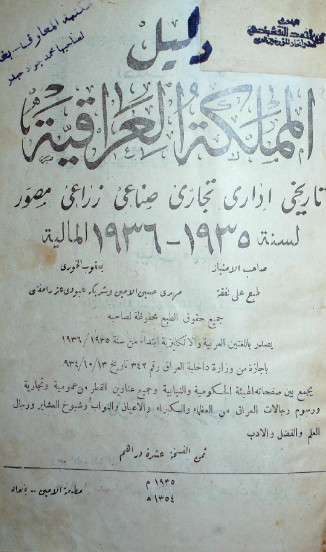 مكتبة المعارف - بغداد
لصاحبها محمد جواد حيدر
دليل
المملكة العراقية
تاريخي اداري تجاري صناعي زراعي مصور
لسنة ١٩٣٥ - ١٩٣٦ المالية
صاحب الامتياز
يعقوب الخوري
طبع على نفقة
مهدي حسين الامين وشريكه عبودي
جميع حقوق الطبع محفوظة لصاحبه
يصدر باللغتين العربية والانكليزية ابتداء من سنة ١٩٣٥/١٩٣٦
باجازة من وزارة داخلية العراق رقم ٣٤٢ تاريخ ٩٣٤/١٠/١٣
يجمع بين صفحاته الهيئة الحكومية والنيابية وجميع عناوين القطر من عمومية وتجارية
ورسوم رجالات العراق من العظماء والكبراء والاعيان والنواب وشيوخ العشاير ورجال
العلم والفضل والادب
ثمن النسخة عشرة دراهم
١٩٣٥ م
١٣٥٤ ھ
مطبعة الامين -- بغداد